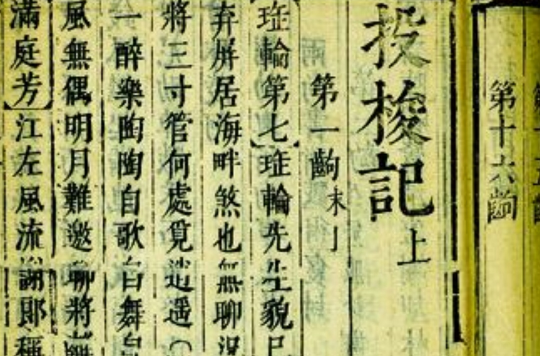 第十六齣
投梭記上
第一齣 末
輪第七】輪先生貌已
弃屏居海畔煞也無聊況
將三寸管何處覓逍遥○
一醉樂陶陶自歌自舞自
風無偶明月難邀聊將
滿庭芳】江左風流謝郎稱